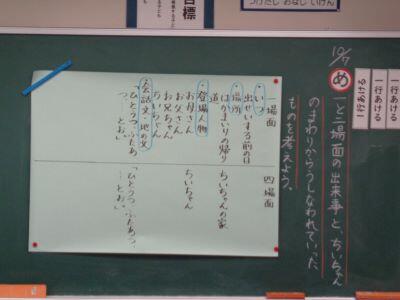 つけたし おなじ いけん
目標
10/7
一行あける
一行あける
一行あける
め 一と二場面の出来事と、ちいちゃん
のまわりからうしなわれていった
ものを考えよう。
一場面
・いつ
出せいする前の日
・場所
はかまいりの帰り
道
・登場人物
お母さん
お父さん
お兄ちゃん
ちいちゃん
・会話文・地の文
「ひとうつ、ふたあつ、
…とお。」
四場面
ちいちゃんの家
ちいちゃん
「ひとうつ、ふたあつ、
…とお。」